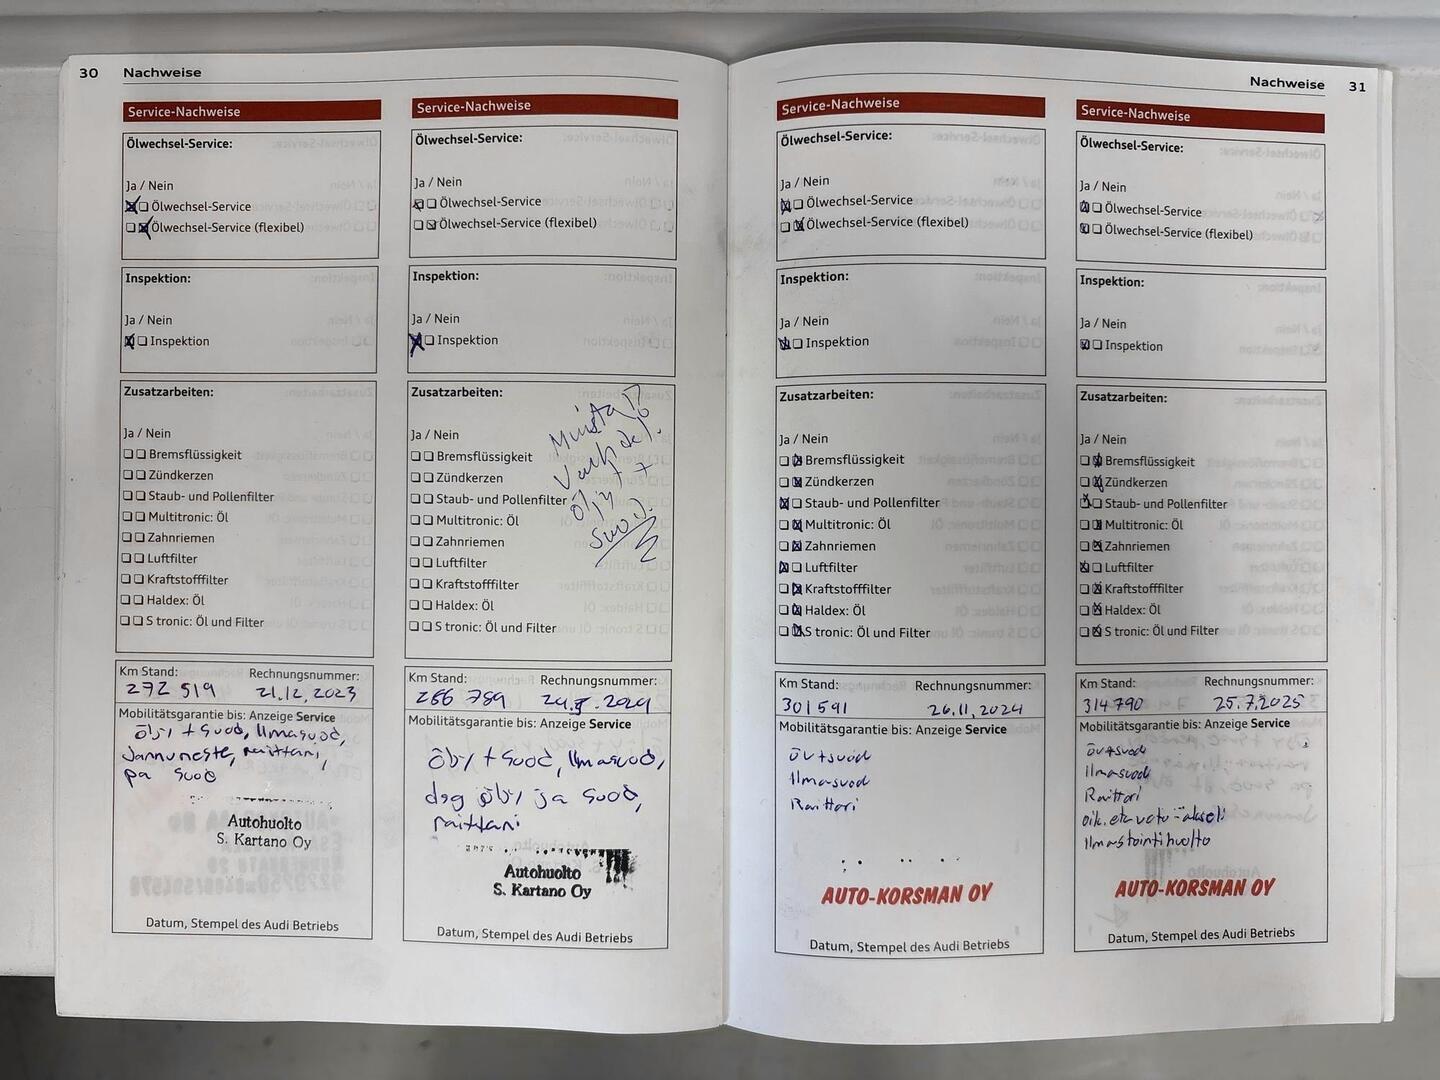 30 Nachweise
Service-Nachweise
Ölwechsel-Service:
Ja / Nein
Ölwechsel-Service
Ölwechsel-Service (flexibel)
Inspektion:
Ja / Nein
Inspektion
Zusatzarbeiten:
Ja / Nein
Bremsflüssigkeit
Zündkerzen
Staub- und Pollenfilter
Multitronic: Öl
Zahnriemen
Luftfilter
Kraftstofffilter
Haldex: Öl
S tronic: Öl und Filter
Km Stand: Rechnungsnummer:
272 519 21.12.2023
Mobilitätsgarantie bis: Anzeige Service
öljy + suod, ilmasuod,
Jarruneste, raittari,
pa suod
Autohuolto
S. Kartano Oy
Datum, Stempel des Audi Betriebs
Service-Nachweise
Ölwechsel-Service:
Ja / Nein
Ölwechsel-Service
Ölwechsel-Service (flexibel)
Inspektion:
Ja / Nein
Inspektion
Zusatzarbeiten:
Ja / Nein
Bremsflüssigkeit
Zündkerzen
Staub- und Pollenfilter
Multitronic: Öl
Zahnriemen
Luftfilter
Kraftstofffilter
Haldex: Öl
S tronic: Öl und Filter
öljyt +
suod.
Km Stand: Rechnungsnummer:
286 789 2024
Mobilitätsgarantie bis: Anzeige Service
öljy + suod, ilmasuod,
dsg öljy ja suod,
raittari
Autohuolto
S. Kartano Oy
Datum, Stempel des Audi Betriebs
Nachweise 31
Service-Nachweise
Ölwechsel-Service:
Ja / Nein
Ölwechsel-Service
Ölwechsel-Service (flexibel)
Inspektion:
Ja / Nein
Inspektion
Zusatzarbeiten:
Ja / Nein
Bremsflüssigkeit
Zündkerzen
Staub- und Pollenfilter
Multitronic: Öl
Zahnriemen
Luftfilter
Kraftstofffilter
Haldex: Öl
S tronic: Öl und Filter
Km Stand: Rechnungsnummer:
301 591 26.11.2024
Mobilitätsgarantie bis: Anzeige Service
öv+suod
Ilmasuod
Raittari
AUTO-KORSMAN OY
Datum, Stempel des Audi Betriebs
Service-Nachweise
Ölwechsel-Service:
Ja / Nein
Ölwechsel-Service
Ölwechsel-Service (flexibel)
Inspektion:
Ja / Nein
Inspektion
Zusatzarbeiten:
Ja / Nein
Bremsflüssigkeit
Zündkerzen
Staub- und Pollenfilter
Multitronic: Öl
Zahnriemen
Luftfilter
Kraftstofffilter
Haldex: Öl
S tronic: Öl und Filter
Km Stand: Rechnungsnummer:
314 790 25.7.2025
Mobilitätsgarantie bis: Anzeige Service
öv+suod
Ilmasuod
Raittari
oik. etu veto-akseli
Ilmastointihuolto
AUTO-KORSMAN OY
Datum, Stempel des Audi Betriebs